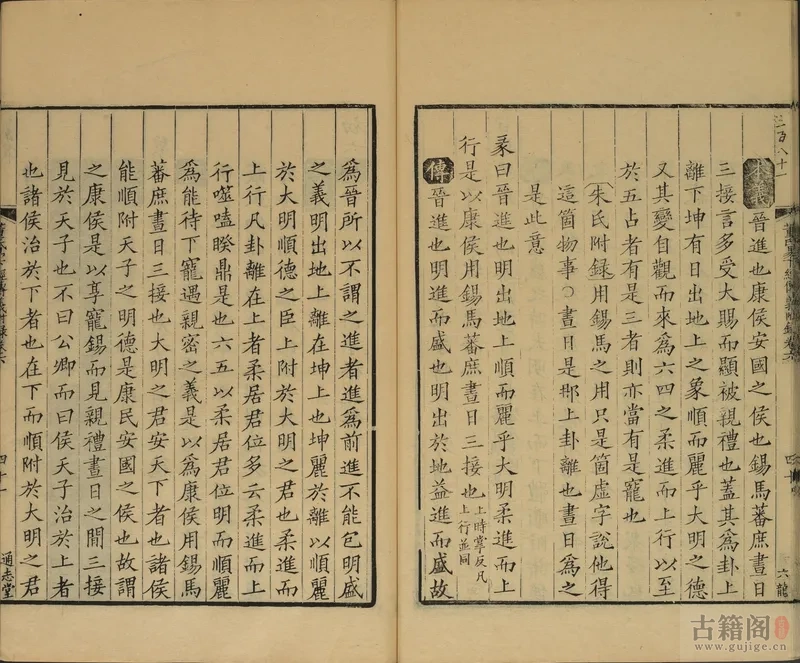 本義晉進也康侯安國之侯也錫馬蕃庶晝日
三接言多受大賜而顯被親禮也蓋其為卦上
離下坤有日出地上之象順而麗乎大明之德
又其變自觀而來為六四之柔進而上行以至
於五占者有是三者則亦當有是寵也
朱氏附録用錫馬之用只是箇虛字說他得
這箇物事○晝日是那上卦離也晝日為之
是此意
彖曰晉進也明出地上順而麗乎大明柔進而上
行是以康侯用錫馬蕃庶晝日三接也上時掌反凡上行並同
傳晉進也明進而盛也明出於地益進而盛故
六龍
為晉所以不謂之進者進為前進不能包明盛
之義明出地上離在坤上也坤麗於離以順麗
於大明順德之臣上附於大明之君也柔進而
上行凡卦離在上者柔居君位多云柔進而上
行噬嗑睽鼎是也六五以柔居君位明而順麗
為能待下寵遇親密之義是以為康侯用錫馬
蕃庶晝日三接也大明之君安天下者也諸侯
能順附天子之明德是康民安國之侯也故謂
之康侯是以享寵錫而見親禮晝日之間三接
見於天子也不曰公卿而曰侯天子治於上者
也諸侯治於下者也在下而順附於大明之君
四十一
通志堂
古籍阁
www.gujige.cn